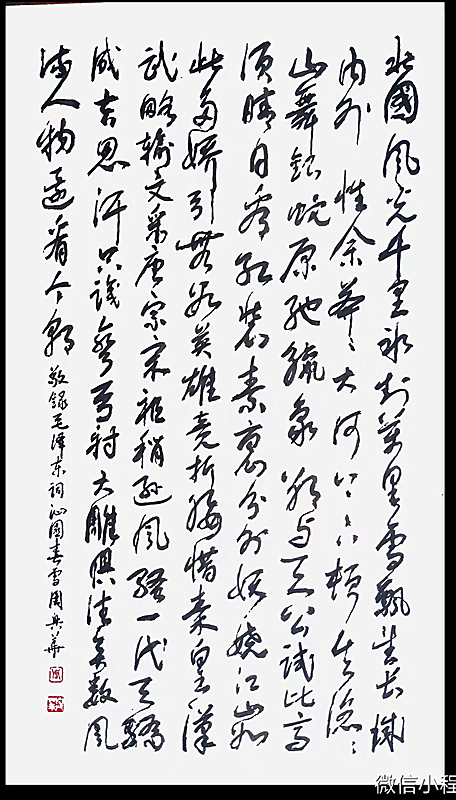 北國風光千里冰封萬里雪飄望長城
內外惟余莽〻大河上下頓失滔〻
山舞銀蛇原馳蠟象欲与天公試比高
須晴日看紅裝素裹分外妖嬈江山如
此多嬌引無數英雄竞折腰惜秦皇漢
武略輸文采唐宗宋祖稍遜風騷一代天驕
成吉思汗只識彎弓射大雕俱往矣數風
流人物還看今朝 敬錄毛泽东詞沁園春雪周興華
微信小程